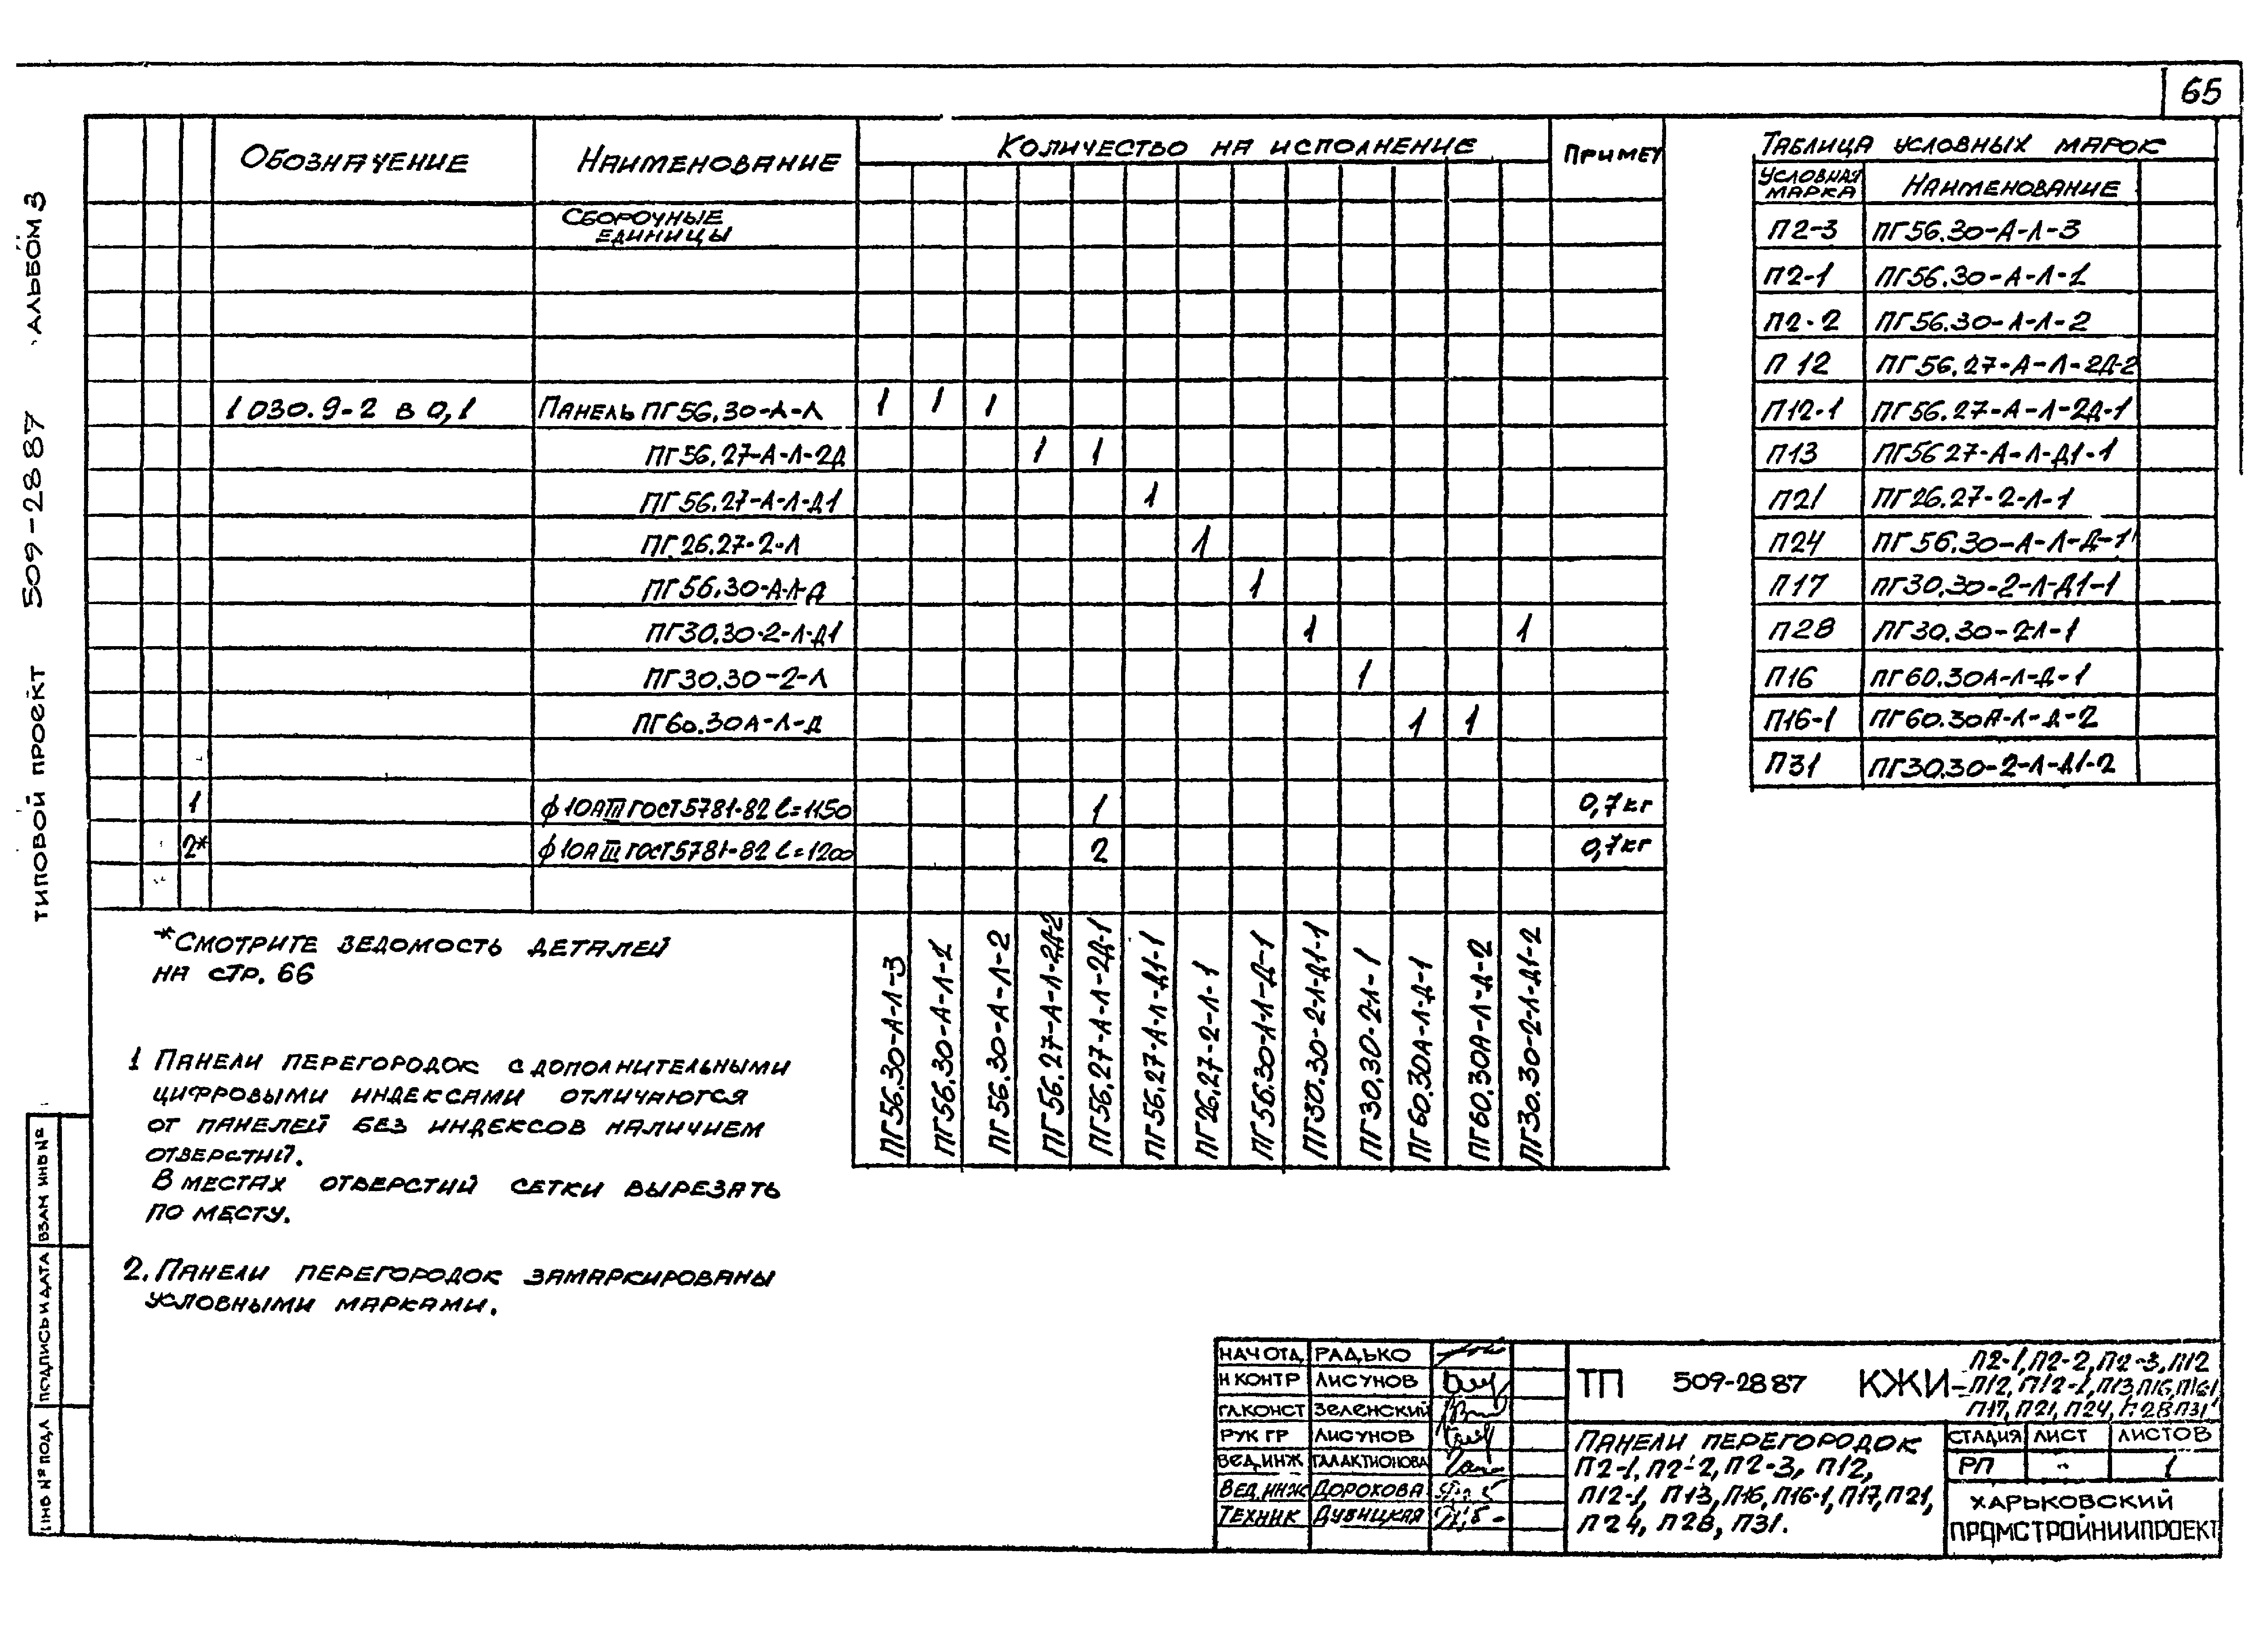 65
ТИПОВОЙ ПРОЕКТ 509-28 87 АЛЬБОМ 3
ОБОЗНАЧЕНИЕ
НАИМЕНОВАНИЕ
КОЛИЧЕСТВО НА ИСПОЛНЕНИЕ
ПРИМЕЧ
СБОРОЧНЫЕ
ЕДИНИЦЫ
1 030.9-2 В 0,1 ПАНЕЛЬ ПГ56.30-А-Л 1 1 1
ПГ56.27-А-Л-2Д 1 1
ПГ56.27-А-Л-Д1 1
ПГ.26.27-2-Л 1
ПГ56.30-А-Л-Д 1
ПГ30.30-2-Л-Д1 1 1
ПГ30.30-2-Л 1
ПГ60.30А-Л-Д 1 1
1 ф10АIII ГОСТ5781-82 ℓ=1150 1 0,7кг
2* ф10АIII ГОСТ5781-82 ℓ=1200 2 0,7кг
ПГ56.30-А-Л-3
ПГ56.30-А-Л-1
ПГ56.30-А-Л-2
ПГ56.27-А-Л-2Д-2
ПГ56.27-А-Л-2Д-1
ПГ56.27-А-Л-Д1-1
ПГ26.27-2-Л-1
ПГ56.30-А-Л-Д-1
ПГ30.30-2-Л-Д1-1
ПГ30.30-2-Л-1
ПГ60.30А-Л-Д-1
ПГ60.30А-Л-Д-2
ПГ30.30-2-Л-Д1-2
ТАБЛИЦА УСЛОВНЫХ МАРОК
УСЛОВНАЯ
МАРКА
НАИМЕНОВАНИЕ
П2-3 ПГ56.30-А-Л-3
П2-1 ПГ56.30-А-Л-1
П2-2 ПГ56.30-А-Л-2
П 12 ПГ56.27-А-Л-2Д-2
П12-1 ПГ56.27-А-Л-2Д-1
П13 ПГ56 27-А-Л-Д1-1
П21 ПГ26.27-2-Л-1
П24 ПГ56.30-А-Л-Д-1
П17 ПГ30.30-2-Л-Д1-1
П28 ПГ30.30-2Л-1
П16 ПГ60.30А-Л-Д-1
П16-1 ПГ60.30А-Л-Д-2
П31 ПГ30.30-2-Л-Д1-2
*СМОТРИТЕ ВЕДОМОСТЬ ДЕТАЛЕЙ
НА СТР. 66
1 ПАНЕЛИ ПЕРЕГОРОДОК С ДОПОЛНИТЕЛЬНЫМИ
ЦИФРОВЫМИ ИНДЕКСАМИ ОТЛИЧАЮТСЯ
ОТ ПАНЕЛЕЙ БЕЗ ИНДЕКСОВ НАЛИЧИЕМ
ОТВЕРСТИЙ.
В МЕСТАХ ОТВЕРСТИЙ СЕТКИ ВЫРЕЗАТЬ
ПО МЕСТУ.
2. ПАНЕЛИ ПЕРЕГОРОДОК ЗАМАРКИРОВАНЫ
УСЛОВНЫМИ МАРКАМИ.
ИНВ № ПОДЛ
ПОДПИСЬ И ДАТА
ВЗАМ ИНВ №
НАЧ ОТД РАДЬКО
Н КОНТР ЛИСУНОВ
ГЛ.КОНСТ ЗЕЛЕНСКИЙ
РУК ГР ЛИСУНОВ
ВЕД.ИНЖ ГАЛАКТИОНОВА
ВЕД.ИНЖ ДОРОХОВА
ТЕХНИК ДУБИЦКАЯ
ТП 509-28 87 КЖИ-
П2-1, П2-2, П2-3, П12
П12, П12-1, П13, П16, П16-1
П17, П21, П24, П28 П31
ПАНЕЛИ ПЕРЕГОРОДОК
П2-1, П2-2, П2-3, П12,
П12-1, П13, П16, П16-1, П17, П21,
П24, П28, П31.
СТАДИЯ ЛИСТ ЛИСТОВ
РП - 1
ХАРЬКОВСКИЙ
ПРОМСТРОЙНИИПРОЕКТ